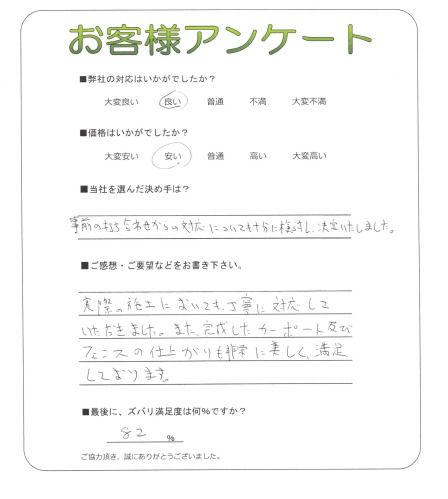 お客様アンケート
■弊社の対応はいかがでしたか?
大変良い 良い 普通 不満 大変不満
■価格はいかがでしたか?
大変安い 安い 普通 高い 大変高い
■当社を選んだ決め手は?
事前の打ち合わせからの対応についても十分に検討し、決定いたしました。
■ご感想・ご要望などをお書き下さい。
実際の施工においても、丁寧に対応して
いただきました。また、完成したカーポート及び
フェンスの仕上がりも非常に美しく、満足
しております。
■最後に、ズバリ満足度は何%ですか?
82 %
ご協力頂き、誠にありがとうございました。